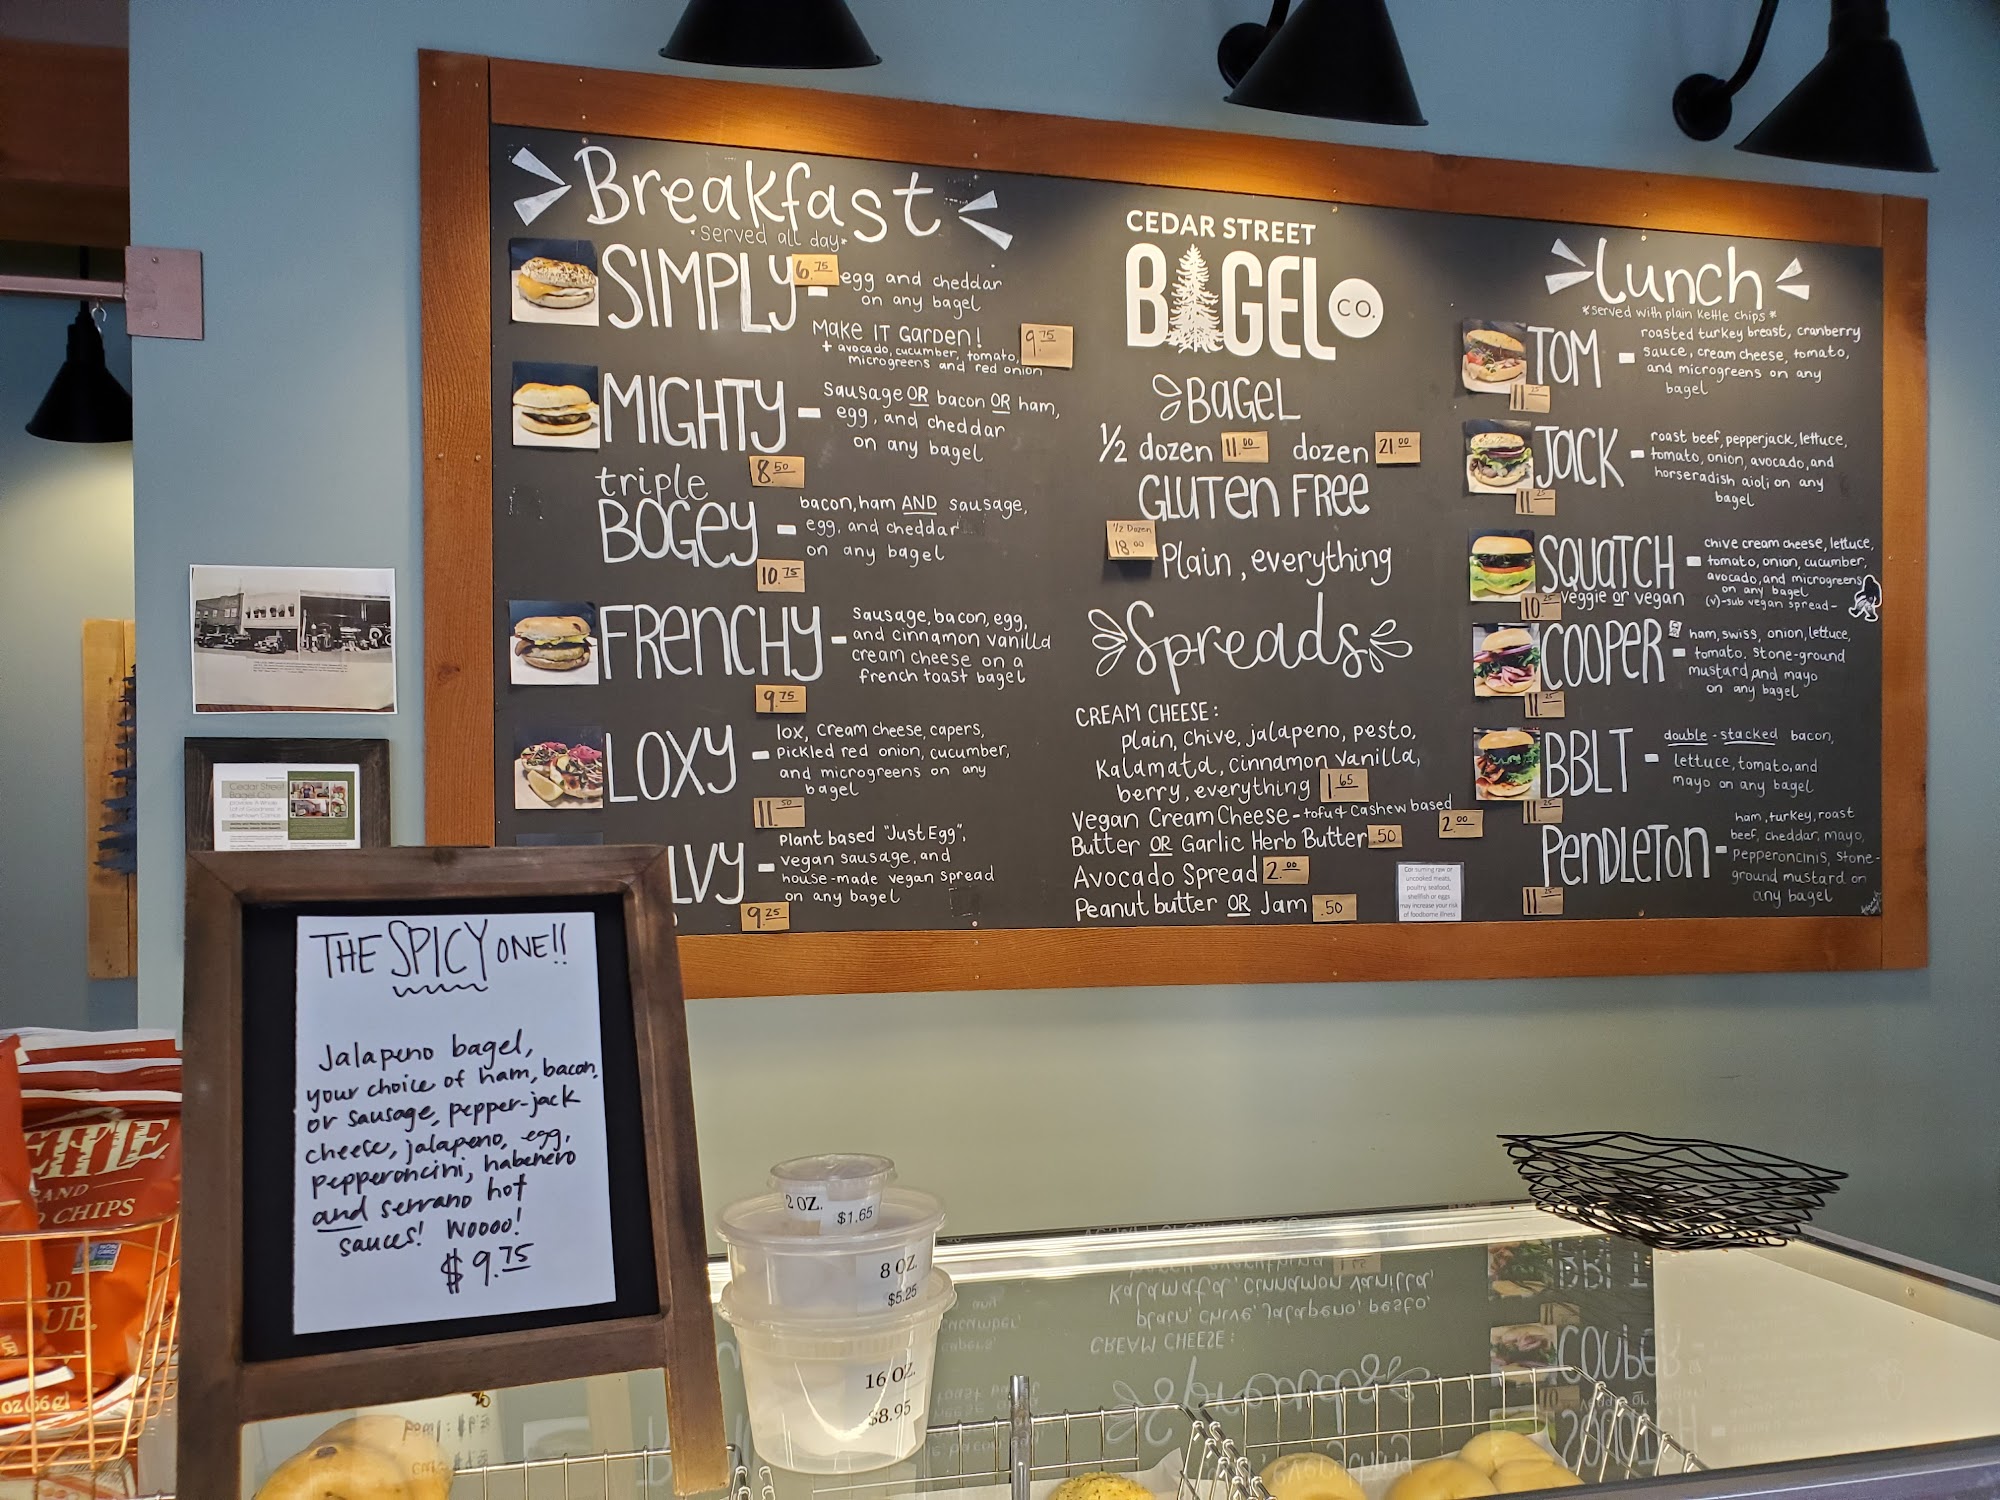 Breakfast
*served all day*
SIMPLY
6.75
egg and cheddar
on any bagel
Make IT Garden!
+ avocado, cucumber, tomato,
microgreens and red onion
9.75
MIGHTY
sausage OR bacon OR ham,
egg, and cheddar
on any bagel
8.50
triple
BOGEY
bacon, ham AND sausage,
egg, and cheddar
on any bagel
10.75
FRENCHY
Sausage, bacon, egg,
and cinnamon vanilla
cream cheese on a
french toast bagel
9.75
LOXY
lox, cream cheese, capers,
pickled red onion, cucumber,
and microgreens on any
bagel
11.50
LVY
Plant based "Just Egg",
vegan sausage, and
house-made vegan spread
on any bagel
9.25
CEDAR STREET
BAGEL CO.
BAGEL
1/2 dozen 11.00 dozen 21.00
GLUTEN FREE
1/2 Dozen
18.00
Plain, everything
Spreads
CREAM CHEESE:
plain, chive, jalapeno, pesto,
Kalamata, cinnamon vanilla,
berry, everything 1.65
Vegan Cream Cheese - tofu & cashew based
2.00
Butter OR Garlic Herb Butter .50
Avocado Spread 2.00
Peanut butter OR Jam .50
Consuming raw or
uncooked meats,
poultry, seafood,
shellfish or eggs
may increase your risk
of foodborne illness
Lunch
*served with plain Kettle chips*
TOM
roasted turkey breast, cranberry
sauce, cream cheese, tomato,
and microgreens on any
bagel
11.25
JACK
roast beef, pepperjack, lettuce,
tomato, onion, avocado, and
horseradish aioli on any
bagel
11.25
SQUATCH
veggie or vegan
chive cream cheese, lettuce,
tomato, onion, cucumber,
avocado, and microgreens
on any bagel
(v)-sub vegan spread-
10.25
COOPER
ham, swiss, onion, lettuce,
tomato, stone-ground
mustard, and mayo
on any bagel
11.25
BBLT
double-stacked bacon,
lettuce, tomato, and
mayo on any bagel
11.25
PENDLETON
ham, turkey, roast
beef, cheddar, mayo,
pepperoncinis, stone-
ground mustard on
any bagel
11.25
Cedar Street
Bagel Co.
THE SPICY ONE!!
Jalapeno bagel,
your choice of ham, bacon,
or sausage, pepper-jack
cheese, jalapeno, egg,
pepperoncini, habenero
and serrano hot
sauces! WOOOO!
$9.75
2 OZ. $1.65
8 OZ.
$5.25
16 OZ.
$8.95
ETTLE
RAND
CHIPS
RD
UE.
OZ (56 g)